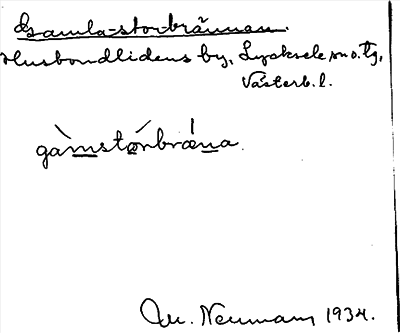 Gamla-stor-brännan.
Husbondlidens by, Lycksele sn o. tg,
Västerb. l.
gàmstǿrbræna.
Neumann 1934.